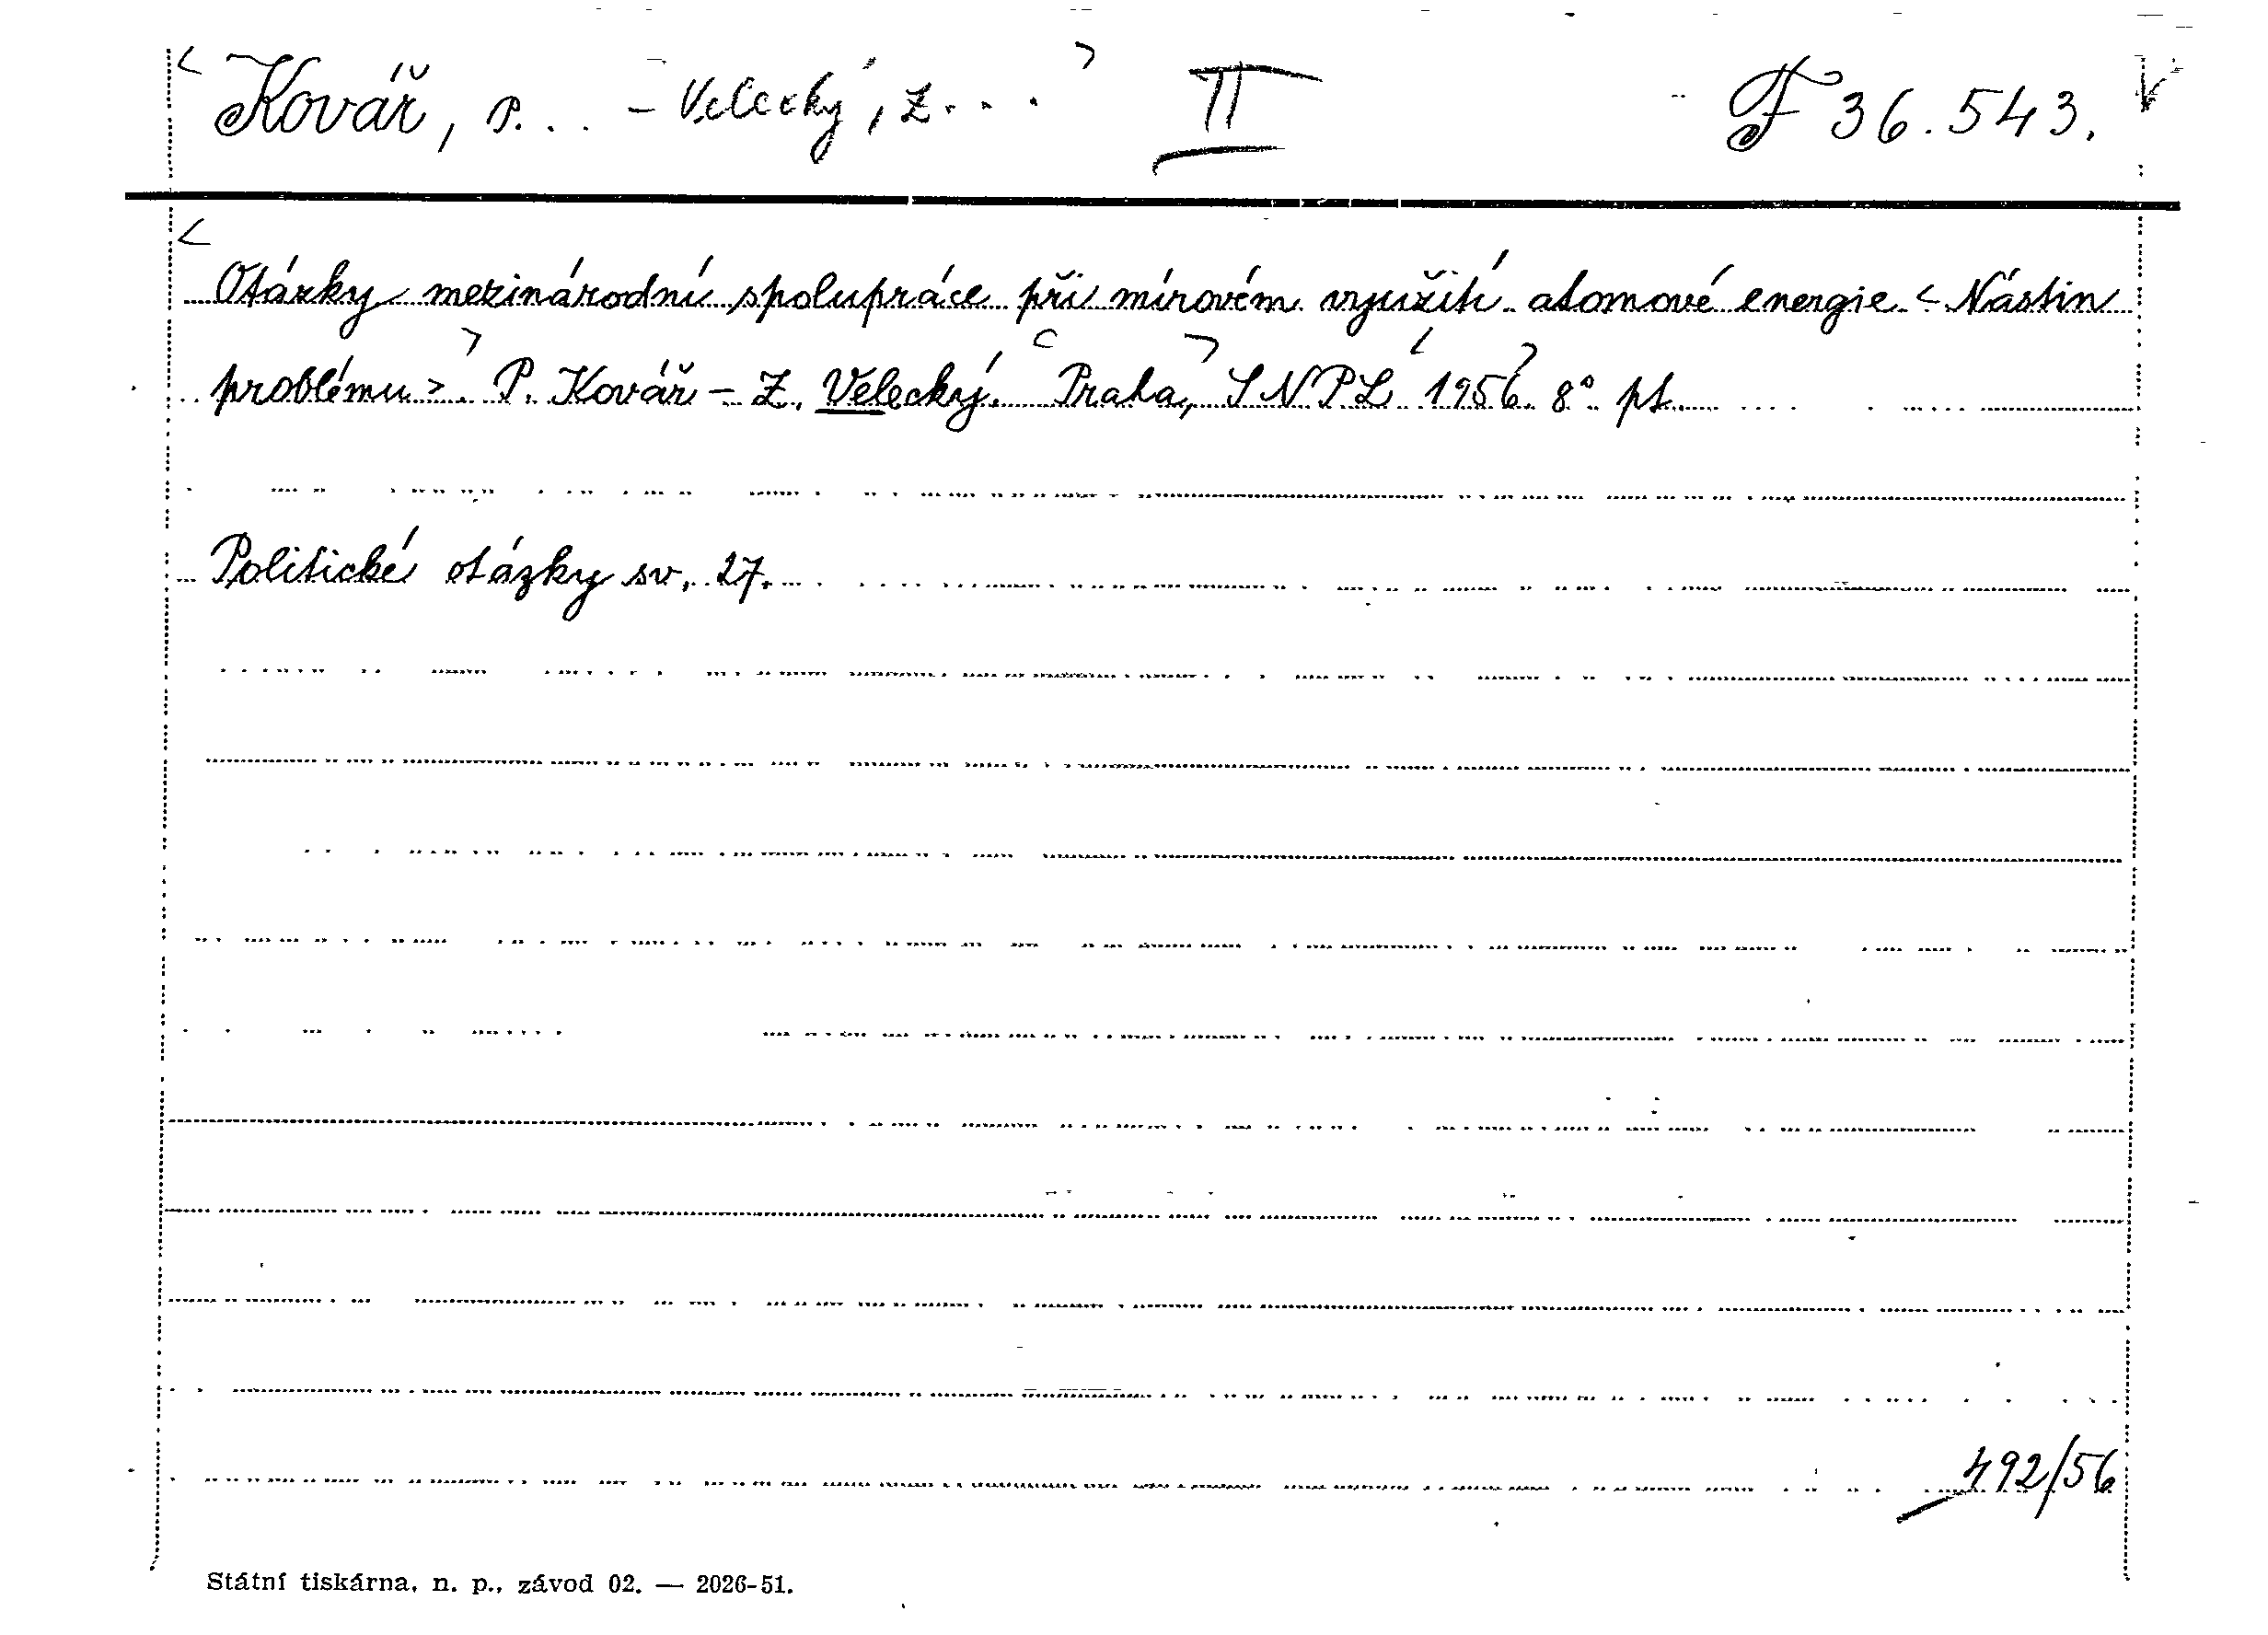 < Kovář, P... – Velecký, Z... > II F 36.543.
< Otázky mezinárodní spolupráce při mírovém využití atomové energie < Nástin
problému >. P. Kovář – Z. Velecký. Praha, SNPL 1956. 8° pt.
Politické otázky sv. 27.
492/56
Státní tiskárna, n. p., závod 02. — 2026-51.